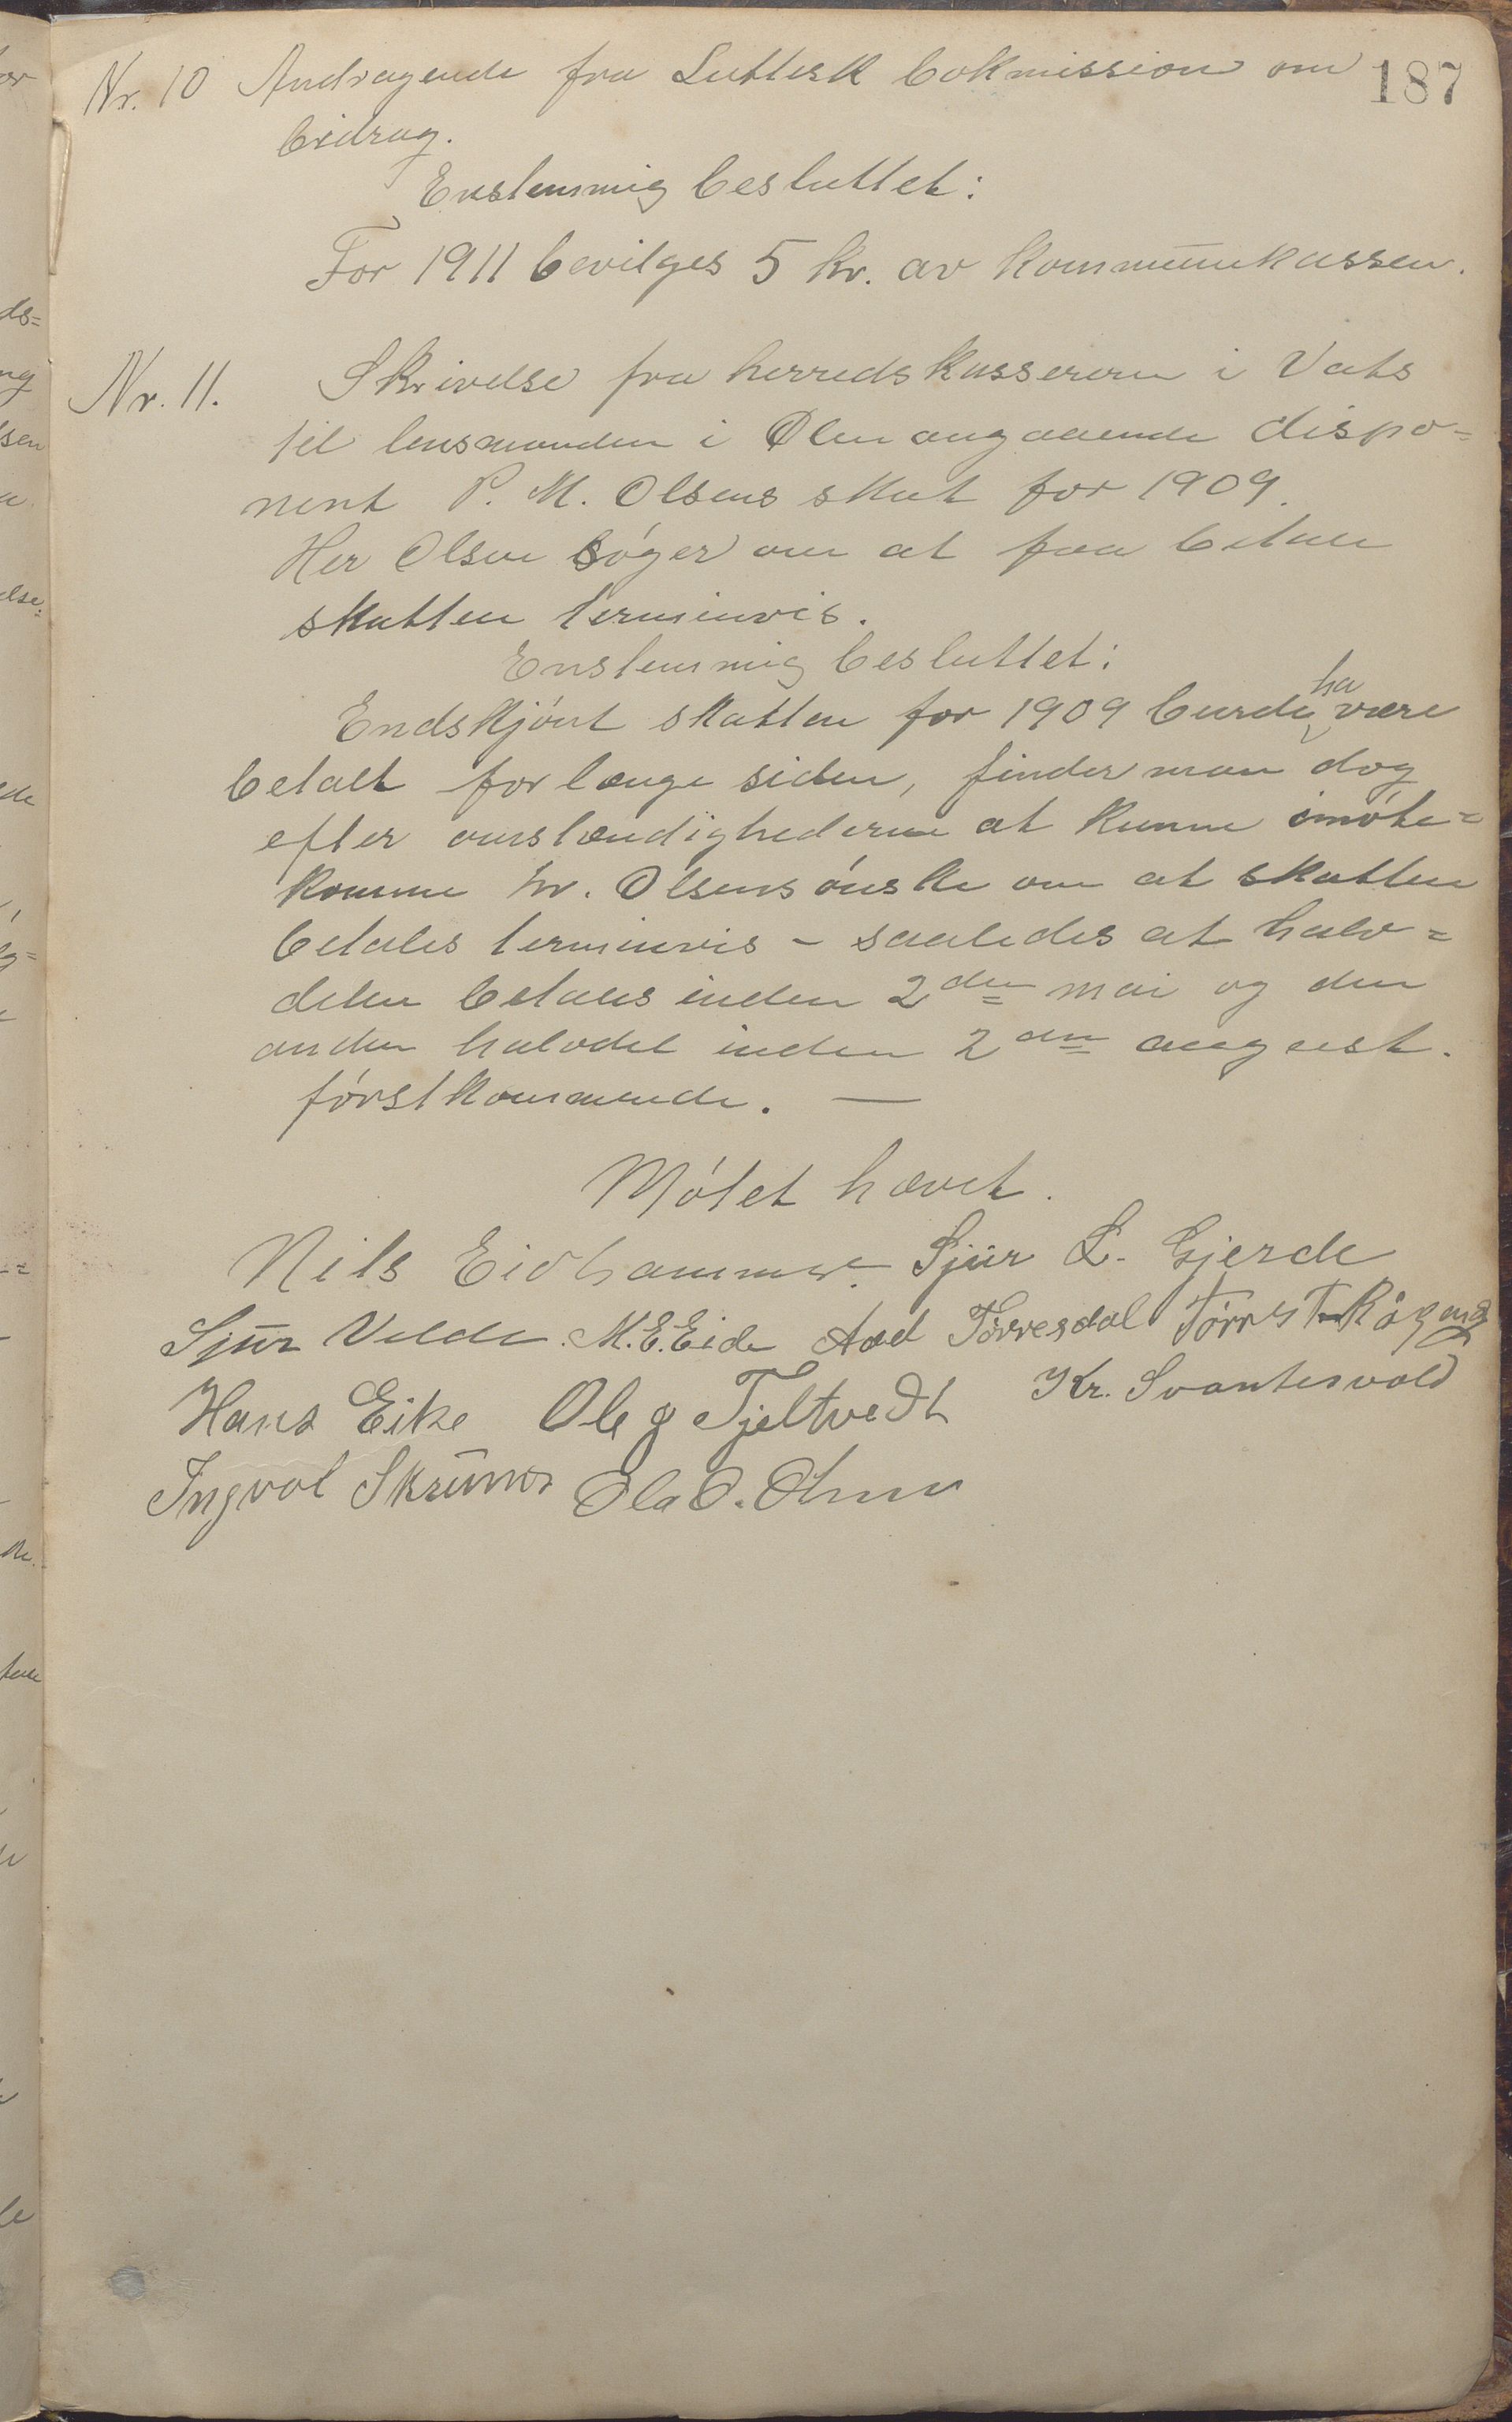 187
Nr. 10 Andragende fra Luthersk bokmission om
bidrag.
Enstemmig besluttet:
For 1911 bevilges 5 kr. av kommunekassen.
Nr. 11. Skrivelse fra herredskassereren i Vats
til lensmanden i Ølen angaaende dispo=
nent P. M. Olsens skat for 1909.
Her Olsen søger om at faa betale
skatten terminvis.
Enstemmig besluttet:
Endskjönt skatten for 1909 burde ha være
betalt for længe siden, finder man dog
efter omstændighederne at kunne imøte=
komme hr. Olsens ønske om at skatten
betales terminvis - saaledes at halv=
delen betales inden 2den mai og den
anden halvdel inden 2den august.
førstkommende. —
Møtet hævet.
Nils Eidhammer. Sjur L. Gjerde
Sjur Velde. M. E. Eide Aad Tørresdal Tørres T. Råg
Hans Eike Ole G Tjeltvedt Kr. Svantesvold
Ingvol Skrunes Ola O.